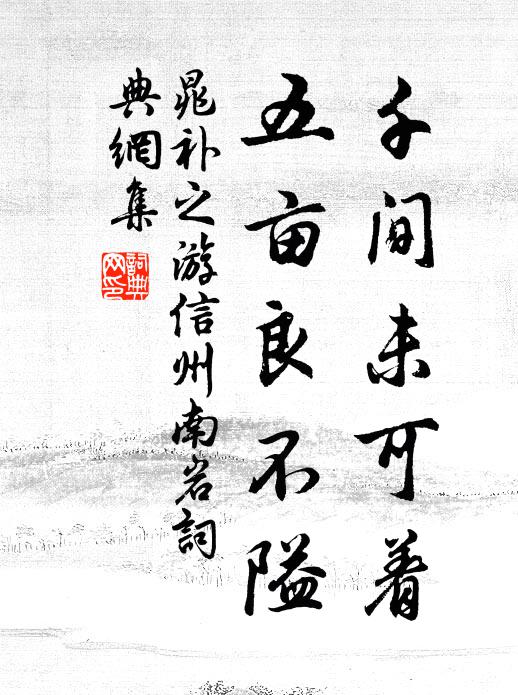 千间未可着
五亩良不隘
晁补之游信州南岩詞
典網集
詞典網印